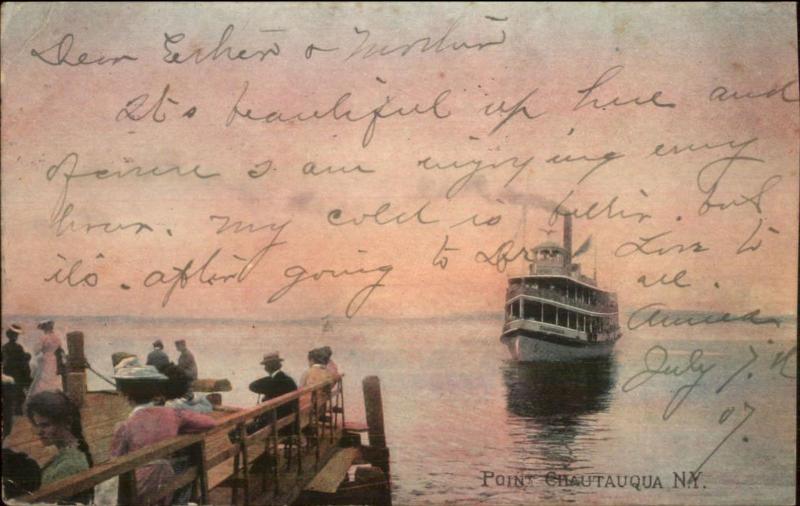 Dear Esther & Mother
It's beautiful up here and
of course I am enjoying every
hour. My cold is better. but
its. after going to Dr. Love to
all.
July 7. 
07.
POINT CHAUTAUQUA N.Y.